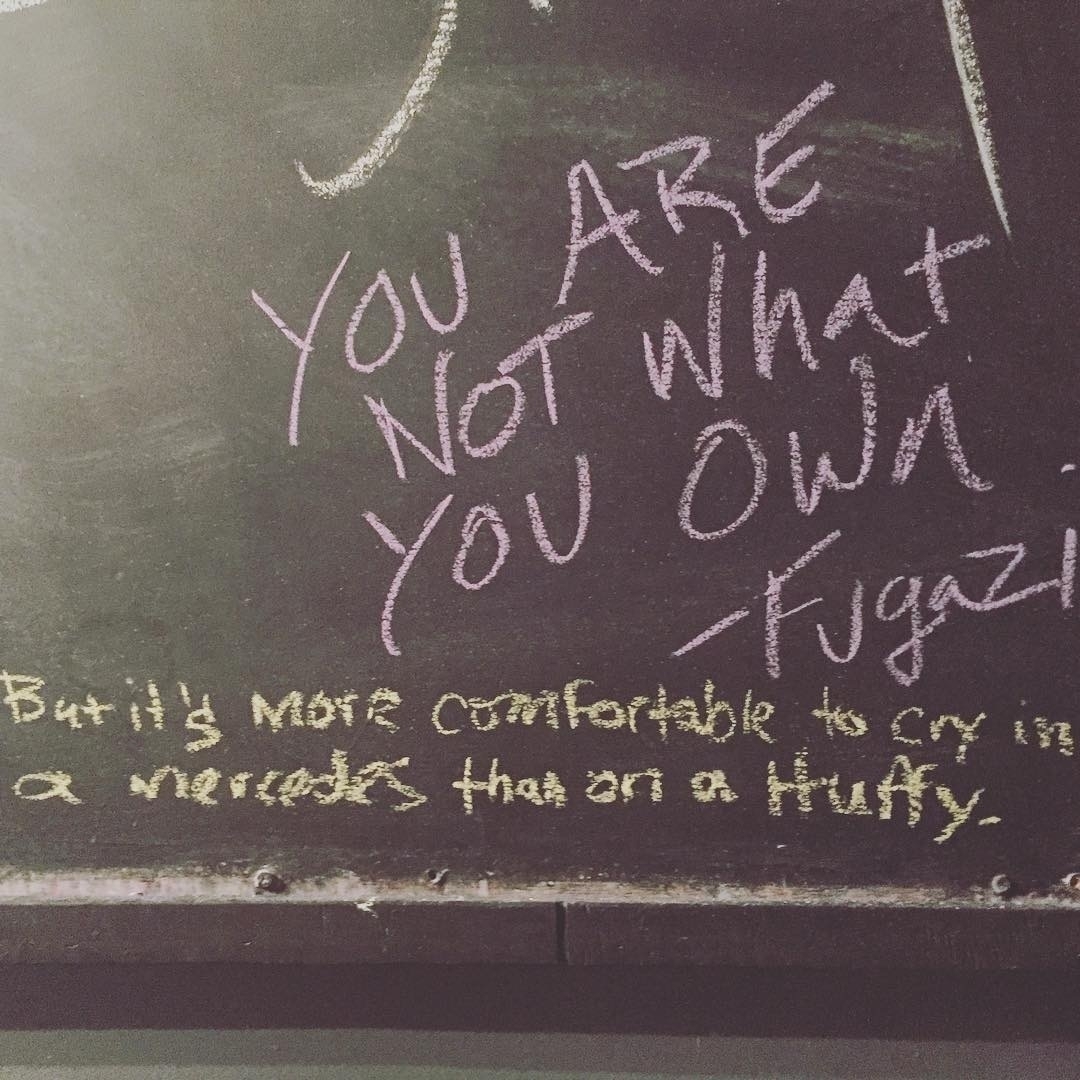 YOU ARE
NOT What
YOU OWN.
-Fugazi
But it's more comfortable to cry in
a mercedes than on a Huffy.